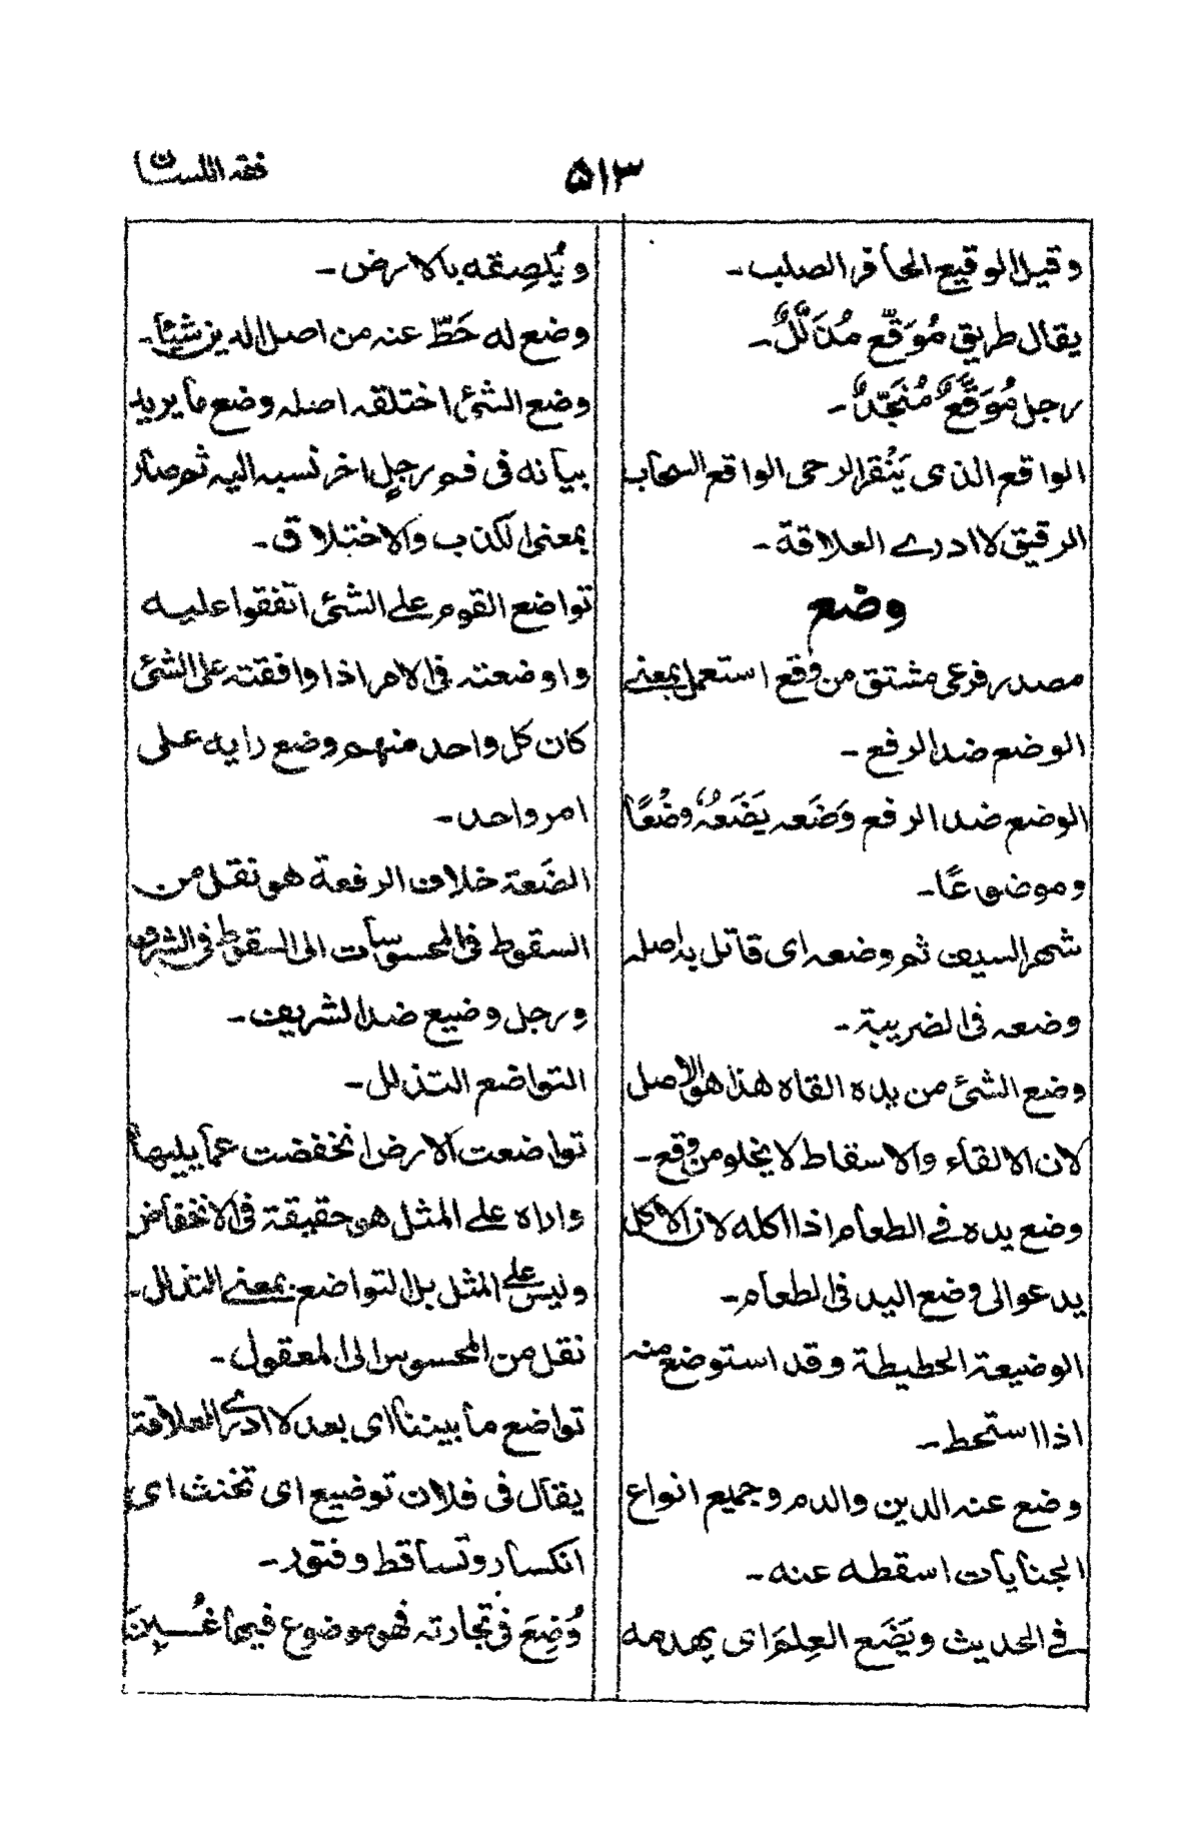 فقه اللسان
٥١٣
وقيل الوقيع الحافر الصليب۔
يقال طريق مُوَقَّع مُذَلَّلٌ۔
رجل مُوَقَّعٌ مُنَجَّذٌ۔
الواقع الذى يَنْقر الرحى الواقع السحاب
الرقيق لا ادرے العلاقة۔
وضع
مصدر فرعى مشتق من وقع استعمل بمعنے
الوضع ضد الرفع۔
الوضع ضد الرفع وَضَعه يَضَعُهٗ وضْعًا
وموضوعًا۔
شهر السيف ثم وضعه اى قاتل به اصله
وضعه فى الضريبة۔
وضع الشئ من يده القاه هذا هو الاصل
لان الالقاء والاسقاط لا يخلو من وقع۔
وضع يده فے الطعام اذا اكله لان الاكل
يدعو الى وضع اليد فى الطعام۔
الوضيعة الحطيطة وقد استوضع منه
اذا استحط۔
وضع عنه الدين والدم وجميع انواع
الجنايات اسقطه عنه۔
فے الحديث ويَضَع العِلمَ اى يهدمه
ويُلصِقه بالارض۔
وضع له حَطّ عنه من اصل الدين شيئا۔
وضع الشئ اختلقه اصله وضع ما يريد
بيانه فى فم رجلٍ اخر نسبه اليه ثم صار
بمعنى الكذب والاختلاق۔
تواضع القوم علے الشئ اتفقوا عليه
واوضعته فى الامر اذا وافقته على الشئ
كان كل واحد منهم وضع رايه على
امر واحد۔
الضَعة خلاف الرفعة هو نقل من
السقوط فى المحسوسات الى السقوط فى الشرف
ورجل وضيع ضد الشريف۔
التواضع التذلل۔
تواضعت الارض انخفضت عما يليها
واراه علے المثل هو حقيقة فى الانخفاض
وليس علے المثل بل التواضع بمعنے التذلل۔
نقل من المحسوس الى المعقول۔
تواضع ما بيننا اى بعد لا ادرے العلاقة
يقال فى فلان توضيع اى تخنث اى
انكسار وتساقط وفتور۔
وُضِعَ فى تجارته فهو موضوع فيها غُبِنَ